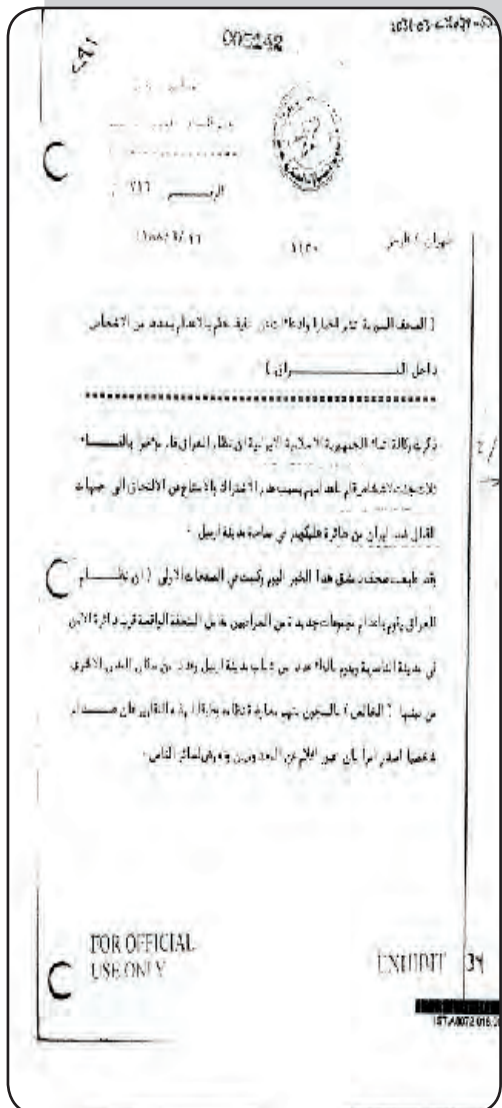 005242
الرقم ٧١٦
طهران / فارس ١١٣٠
( الصحف السورية تنشر اخبارا وادعاءات عن تنفيذ حكم بالاعدام بعدد من الاشخاص
داخل العراق )
ذكرت وكالة انباء الجمهورية الاسلامية الايرانية ان نظام العراق قام مؤخرا بالقاء
ثلاث جثث لاشخاص قام باعدامهم بسبب عدم الاشتراك والامتناع عن الالتحاق الى جبهات
القتال ضد ايران من طائرة هليكوبتر في ساحة مدينة اربيل ٠
وقد طبعت صحف دمشق هذا الخبر اليوم وكتبت في الصفحات الاولى ( ان نظام
العراق يقوم باعدام مجموعات جديدة من العراقيين داخل المنطقة الواقعة قرب دائرة الامن
في مدينة الناصرية ويقوم بالقاء عدد من شباب مدينة اربيل وعدد من سكان المدن الاخرى
من بينها ( الخالص ) بالسجون بتهم معارضة نظامه وطبقا لهذه التقارير فان صدام
شخصيا اصدر امرا بان تصور افلام عن المعدومين وتعرض لسائر الناس ٠
FOR OFFICIAL
USE ONLY
EXHIBIT 34